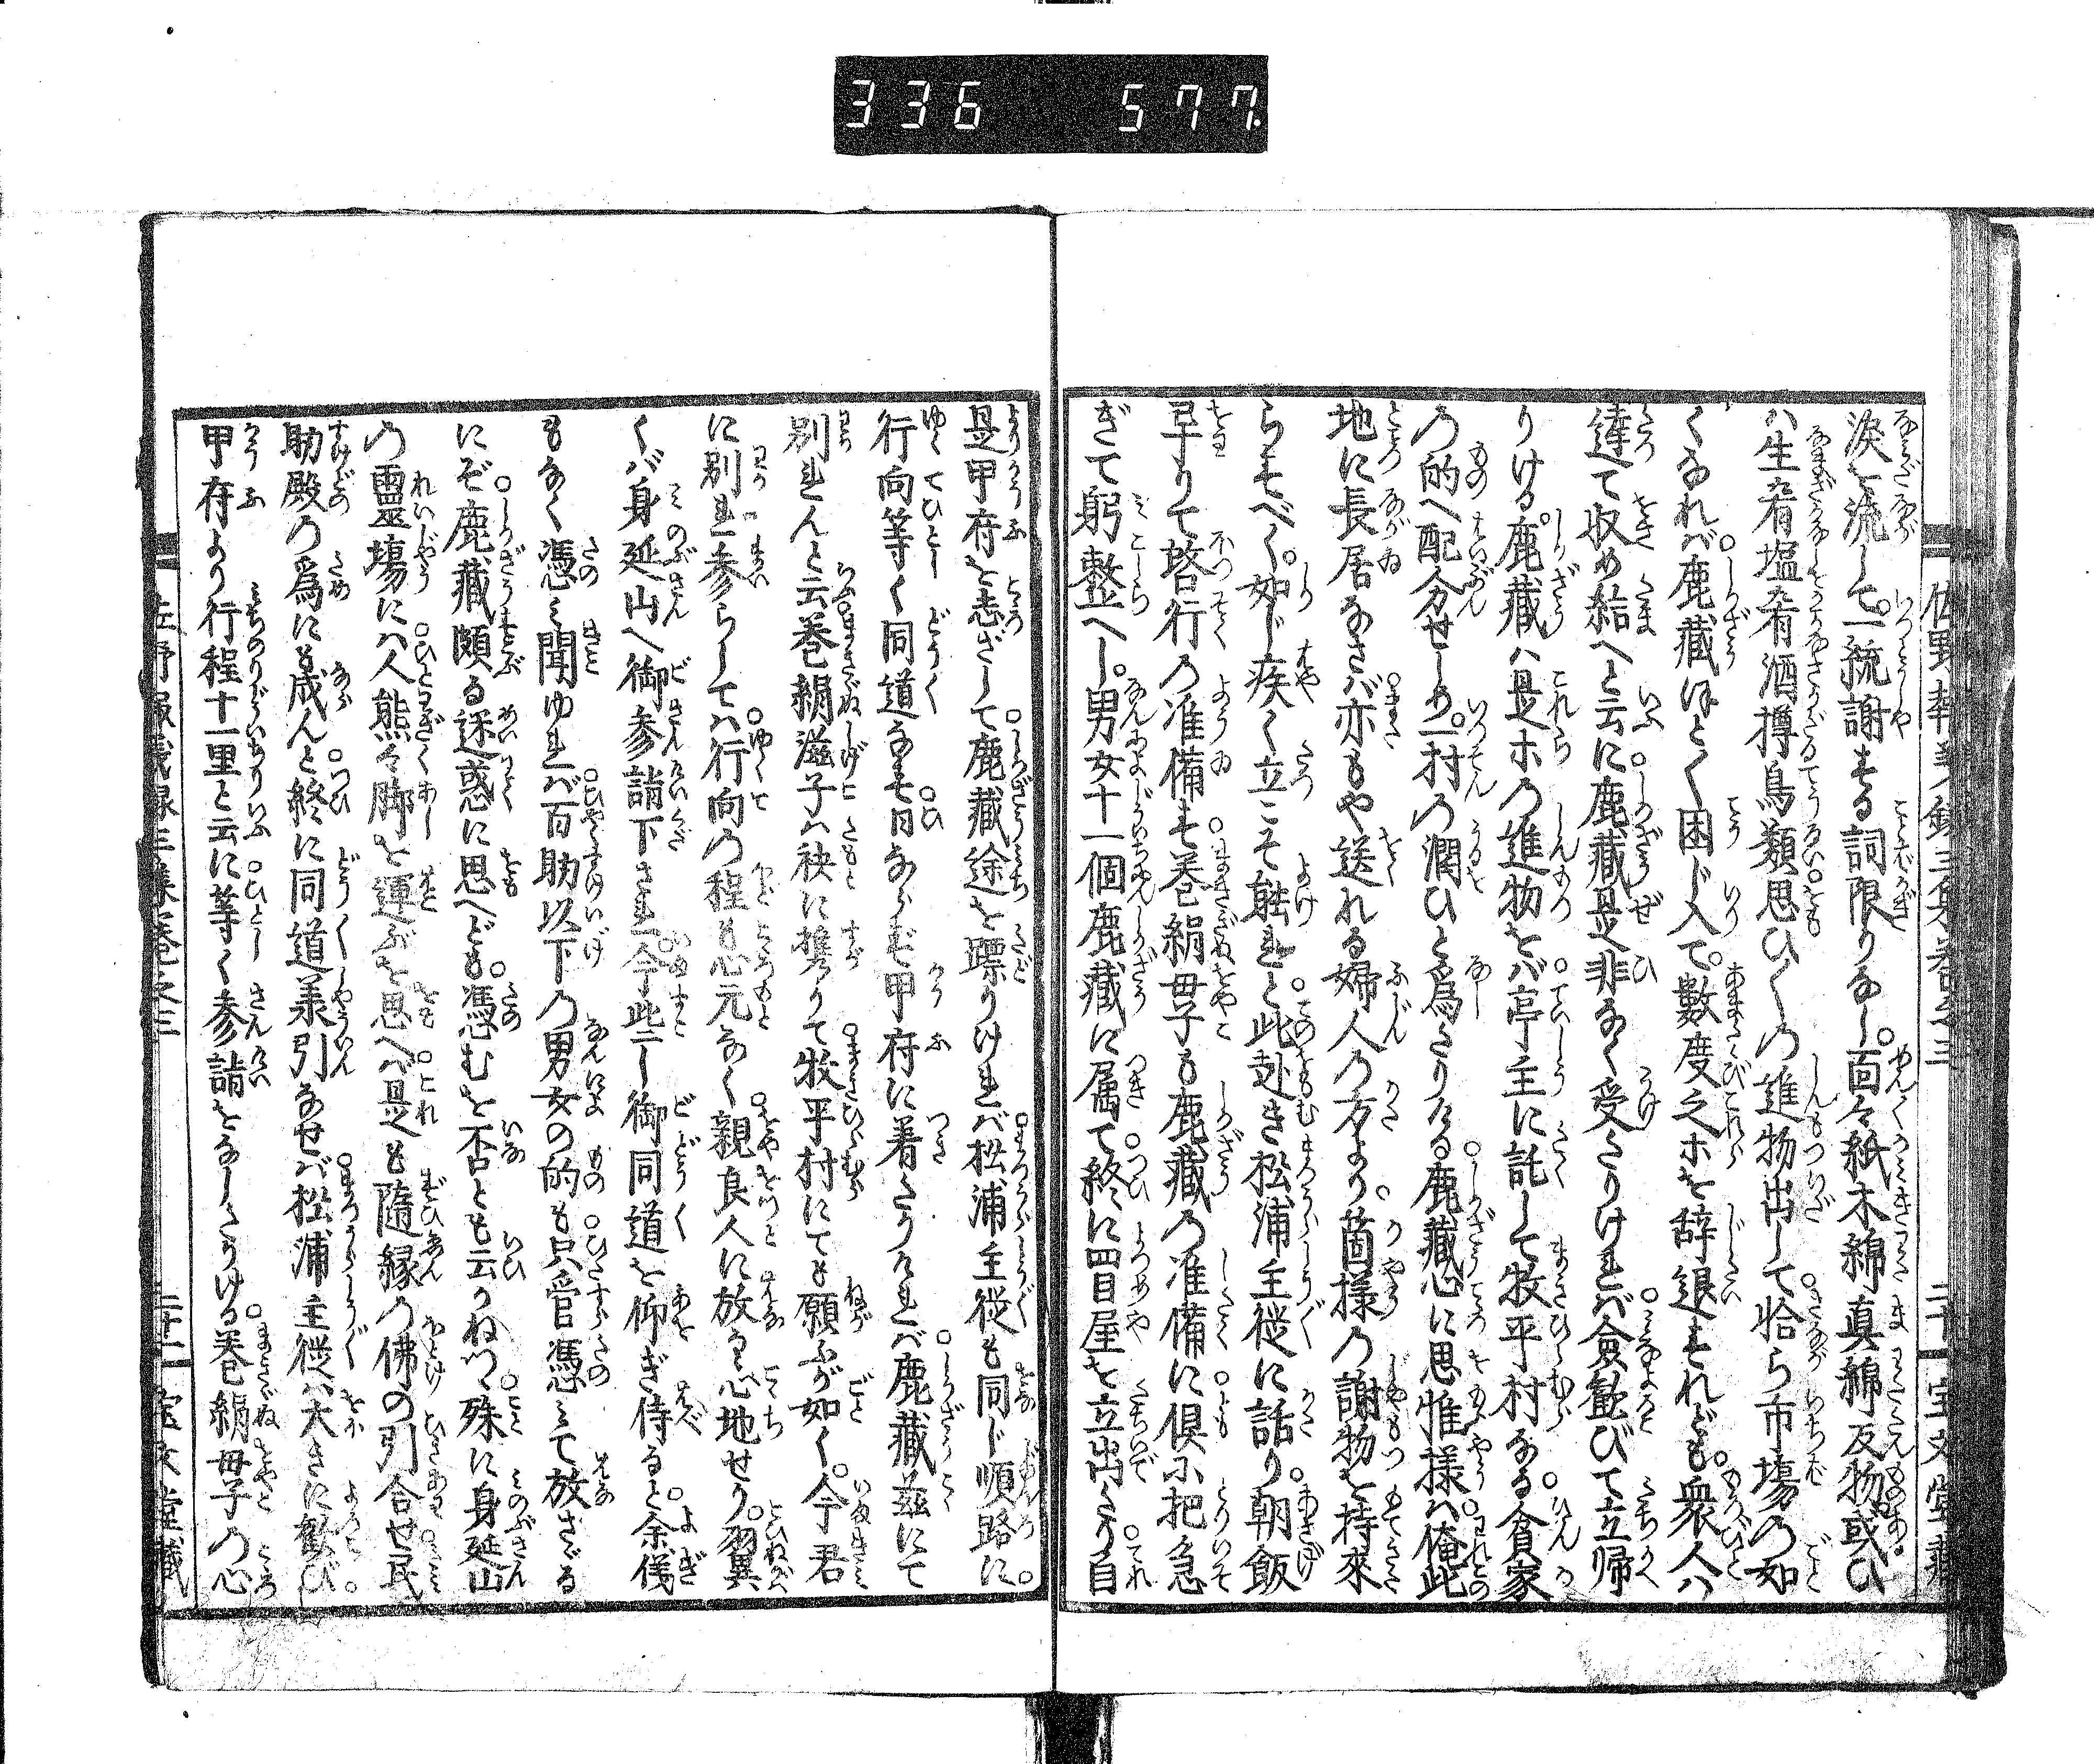 336 577
涙を流して。一統謝する詞限りなし。面々紙木綿真綿反物。或ひ
ハ生肴塩肴酒樽鳥類思ひ〱の進物出して恰ら市場の如
くなれバ。鹿藏ほと〱困じ入て。數度之ホを辞退すれども。衆人ハ
達て収め給へと云に鹿藏是非なく受たりけれバ僉歓びて立帰
りける。鹿藏ハ是ホの進物をバ亭主に託して牧平村なる貧家
の的へ配分せしめ。一村の潤ひと為たりける鹿藏心に思惟様ハ俺此
地に長居なさバ亦もや送れる婦人の方より箇様の謝物を持來
らすべく。如じ疾く立こそ能れと此赴き松浦主従に話り。朝飯
早りて啓行の准備す巻絹母子も鹿藏の准備に倶ホ把急
ぎて躬整へし。男女十一個鹿藏に属て終に四目屋を立出たり自
是甲府を志ざして鹿藏途を躡りけれバ松浦主従も同じ順路に。
行向等く同道なす日ならず甲府に着たりけれバ鹿藏茲にて
別れんと云巻絹滋子ハ袂に携りて牧平村にても願ふが如く。今君
に別れ参らしてハ行向の程も心元なく親良人に放るゝ心地せり。翼
くバ身延山へ御参詣下され。今此二し御同道を仰ぎ侍ると。余儀
もなく憑ミ聞ゆれバ百助以下の男女の的も只管憑ミて放さゞる
にぞ鹿藏頗る迷惑に思へども。憑むを否とも云かねつ殊に身延山
の靈塲にハ人熊々脚を運ぶを思へバ是も隨縁の佛の引合せ民
助殿の爲にも成んと終に同道羕引なせバ松浦主従ハ大きに歓び
甲府より行程十一里と云に等く参詣をなしたりける。巻絹母子の心